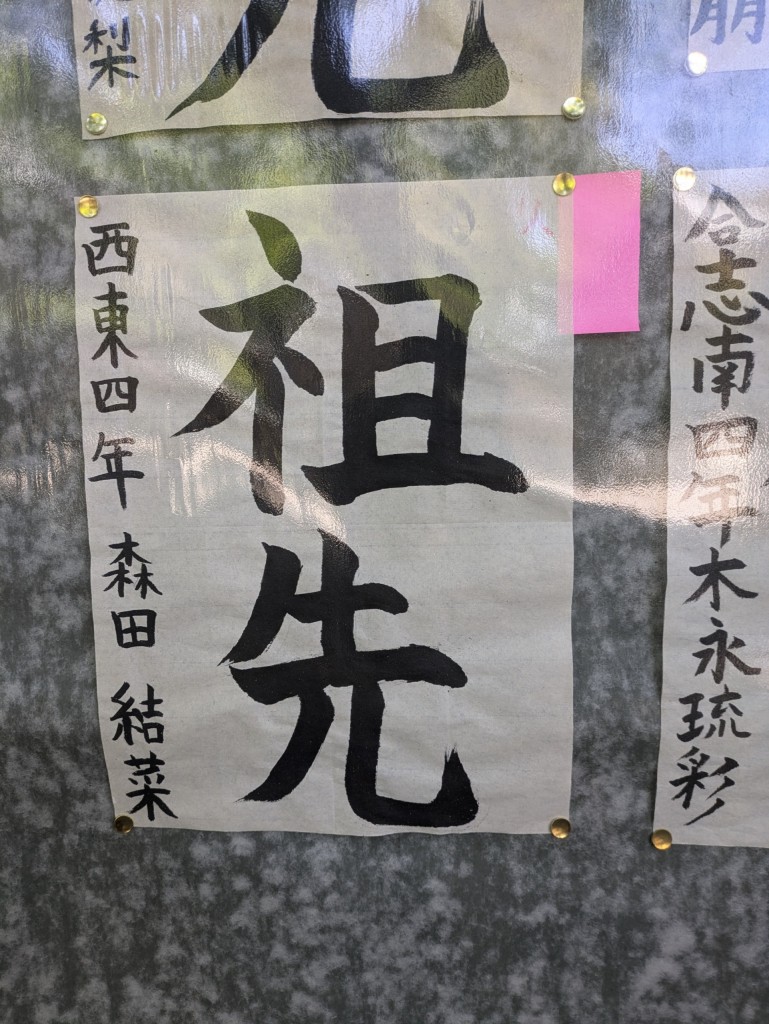 祖先
西東四年 森田 結菜
合志南四年木永琉彩
梨